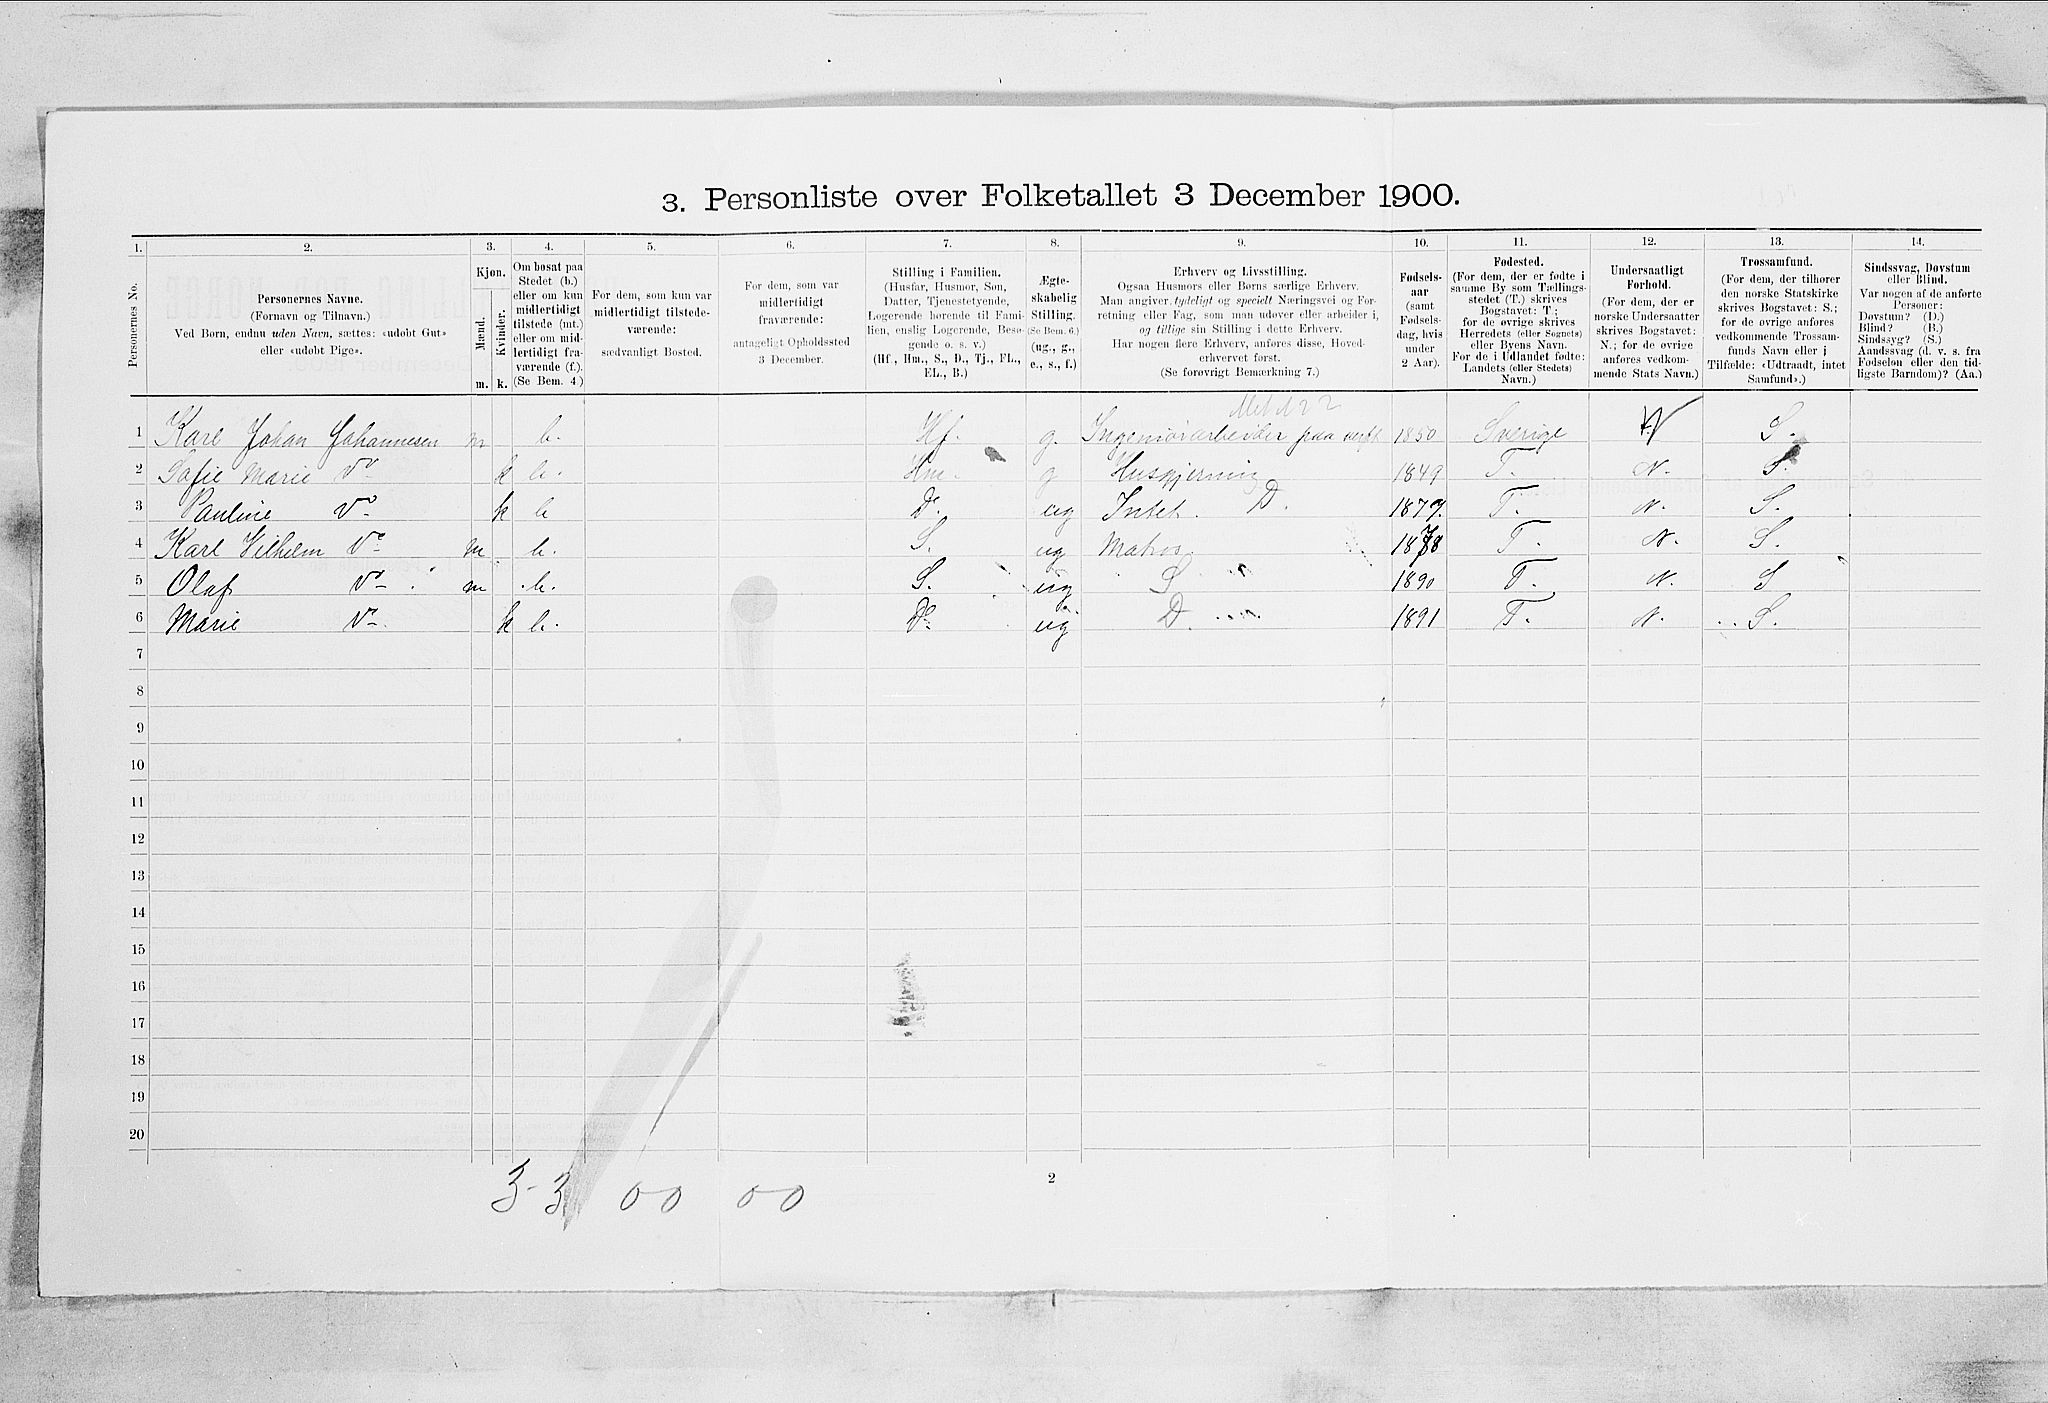 3. Personliste over Folketallet 3 December 1900.
1. 2. 3. 4. 5. 6. 7. 8. 9. 10. 11. 12. 13. 14.
Personernes No.
Personernes Navne.
(Fornavn og Tilnavn.)
Ved Børn, endnu uden Navn, sættes: «udøbt Gut»
eller «udøbt Pige».
Kjøn.
Mænd.
Kvinder.
m. k.
Om bosat paa
Stedet (b.)
eller om kun
midlertidigt
tilstede (mt.)
eller om mid-
lertidigt fra-
værende (f.).
(Se Bem. 4.)
For dem, som kun var
midlertidigt tilstede-
værende:
sædvanligt Bosted.
For dem, som var
midlertidigt
fraværende:
antageligt Opholdssted
3 December.
Stilling i Familien.
(Husfar, Husmor, Søn,
Datter, Tjenestetyende,
Logerende hørende til Fami-
lien, enslig Logerende, Besø-
gende o. s. v.)
(Hf., Hm., S., D., Tj., FL.,
EL., B.)
Ægte-
skabelig
Stilling.
(Se Bem. 6.)
(ug., g.,
e., s., f.)
Erhverv og Livsstilling.
Ogsaa Husmors eller Børns særlige Erhverv.
Man angiver tydeligt og specielt Næringsvei og For-
retning eller Fag, som man udøver eller arbeider i,
og tillige sin Stilling i dette Erhverv.
Har nogen flere Erhverv, anføres disse, Hoved-
erhvervet først.
(Se forøvrigt Bemærkning 7.)
Fødsels-
aar
(samt
Fødsels-
dag, hvis
under
2 Aar).
Fødested.
(For dem, der er fødte i
samme By som Tællings-
stedet (T.) skrives
Bogstavet: T;
for de øvrige skrives
Herredets (eller Sognets)
eller Byens Navn.
For de i Udlandet fødte:
Landets (eller Stedets)
Navn.)
Undersaatligt
Forhold.
(For dem, der er
norske Undersaatter
skrives Bogstavet:
N.; for de øvrige
anføres vedkom-
mende Stats Navn.)
Trossamfund.
(For dem, der tilhører
den norske Statskirke
skrives Bogstavet: S.;
for de øvrige anføres
vedkommende Trossam-
funds Navn eller i
Tilfælde: «Udtraadt, intet
Samfund».)
Sindssvag, Døvstum
eller Blind.
Var nogen af de anførte
Personer:
Døvstum? (D.)
Blind? (B.)
Sindssyg? (S.)
Aandssvag (d. v. s. fra
Fødselen eller den tid-
ligste Barndom)? (Aa.)
1 Karl Johan Johannesen m b. Hf. g. Ingeniørarbeider paa verft 1850 Sverige N S.
2 Sofie Marie Do k b. Hm. g Husgjerning 1849 T. N. S.
3 Pauline Do k b D. ug Intet. D. 1879. T. N. S.
4 Karl Vilhelm Do m b. S. ug Matros 1878 T. N. S.
5 Olaf Do m b. S. ug S 1890 T. N. S
6 Marie Do k b. D. ug D. 1891 T. N. S.
7
8
9
10
11
12
13
14
15
16
17
18
19
20
3-3 0-0 0-0
2